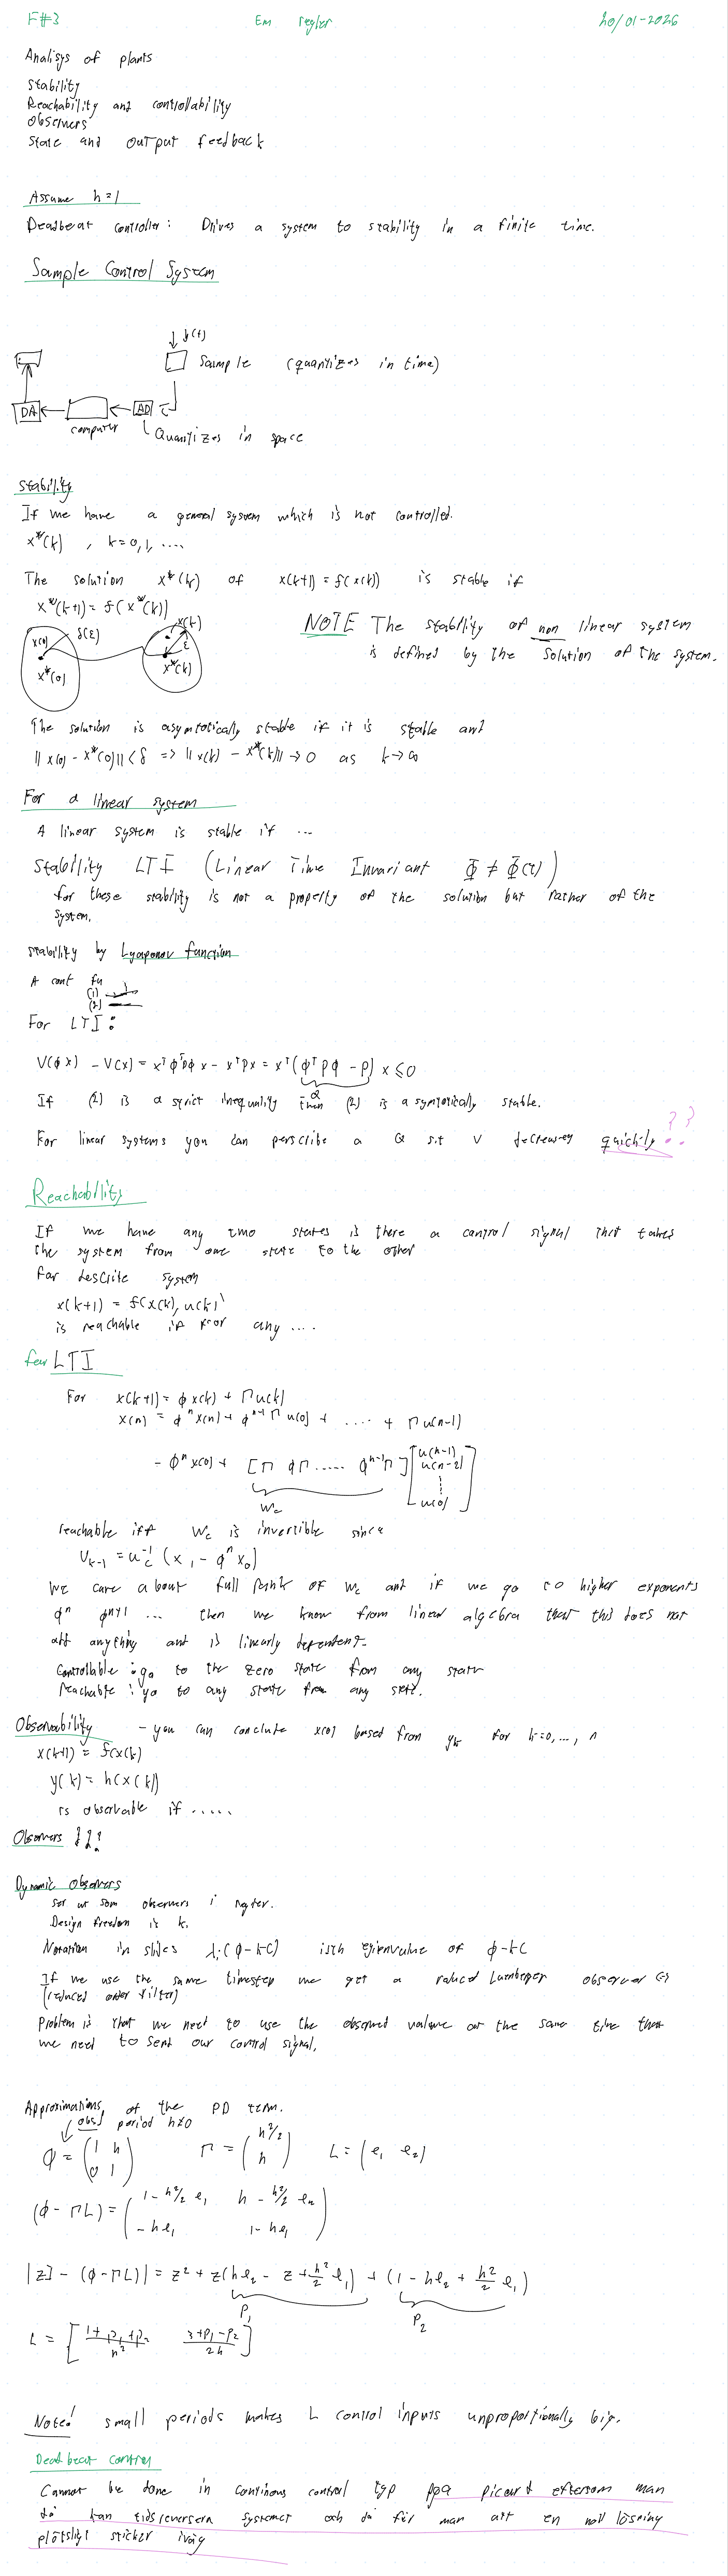 F#3 Em regler 20/01-2026
Analisys of plants
Stability
Reachability and controllability
Observers
State and output feedback
Assume h=1
Deadbeat controller: Drives a system to stability in a finite time.
Sample Control System
y(t)
Sample (quantizes in time)
DA
AD
computer
Quantizes in space
Stability
If we have a general system which is not controlled.
x*(k) , k=0,1, ....
The solution x*(k) of x(k+1) = f(x(k)) is stable if
x*(k+1) = f(x*(k))
x(0) δ(ε) x(k) ε
x*(0) x*(k)
NOTE The stability of non linear system
is defined by the solution of the system.
The solution is asymtotically stable if it is stable and
||x(0) - x*(0)|| < δ => ||x(k) - x*(k)|| → 0 as k→∞
For a linear system
A linear system is stable if ...
Stability LTI (Linear Time Invariant Φ ≠ Φ(t))
for these stability is not a property of the solution but rather of the
system.
stability by Lyaponov function
A cont fu
(1)
(2)
For LTI:
V(ϕx) - V(x) = xᵀϕᵀPϕx - xᵀPx = xᵀ(ϕᵀPϕ - P)x ≤ 0
Q
If (2) is a strict inequality then (2) is asymtotically stable.
For linear systems you can perscribe a Q s.t V decreases quickly ??
Reachability
If we have any two states is there a control signal that takes
the system from one state to the other
for descrite system
x(k+1) = f(x(k), u(k))
is reachable if for any ....
for LTI
For x(k+1) = ϕx(k) + Γu(k)
x(n) = ϕⁿx(n) + ϕⁿ⁻¹Γu(0) + .... + Γu(n-1)
= ϕⁿx(0) + [Γ ϕΓ ..... ϕⁿ⁻¹Γ] [u(n-1) u(n-2) ⋮ u(0)]
Wc
reachable iff Wc is invertible since
U_{k-1} = W_c⁻¹ (x₁ - ϕⁿx₀)
We care about full rank of Wc and if we go to higher exponents
ϕⁿ ϕⁿ⁺¹ ... then we know from linear algebra that this does not
add anything and is linearly dependent.
Controllable: go to the zero state from any state
Reachable: go to any state from any state.
Observability - you can conclude x(0) based from y_k for k=0,..., n
x(k+1) = f(x(k))
y(k) = h(x(k))
is observable if .....
Observers
Dynamic observers
ser ut som observers i regler.
Design freedom is k.
Notation in slides λᵢ(ϕ-kC) isth eigenvalue of ϕ-kC
If we use the same timestep we get a reduced Luenberger observer
(reduced order filter)
Problem is that we need to use the observed value at the same time that
we need to send our control signal.
Approximations of the PD term.
obs! period h≠0
ϕ = (1 h 0 1) Γ = (h²/2 h) L = (l₁ l₂)
(ϕ - ΓL) = (1 - h²/2 l₁ h - h²/2 l₂ -hl₁ 1-hl₂)
|zI - (ϕ-ΓL)| = z² + z(hl₂ - 2 + h²/2 l₁) + (1 - hl₂ + h²/2 l₁)
P₁ P₂
L = [1+p₁+p₂/h² 3+p₁-p₂/2h]
Note! small periods makes L control inputs unproportionally big.
Dead beat control
Cannot be done in continous control typ pga picard eftersom man
då kan tidsreversera systemet och då får man att en noll lösning
plötsligt sticker iväg